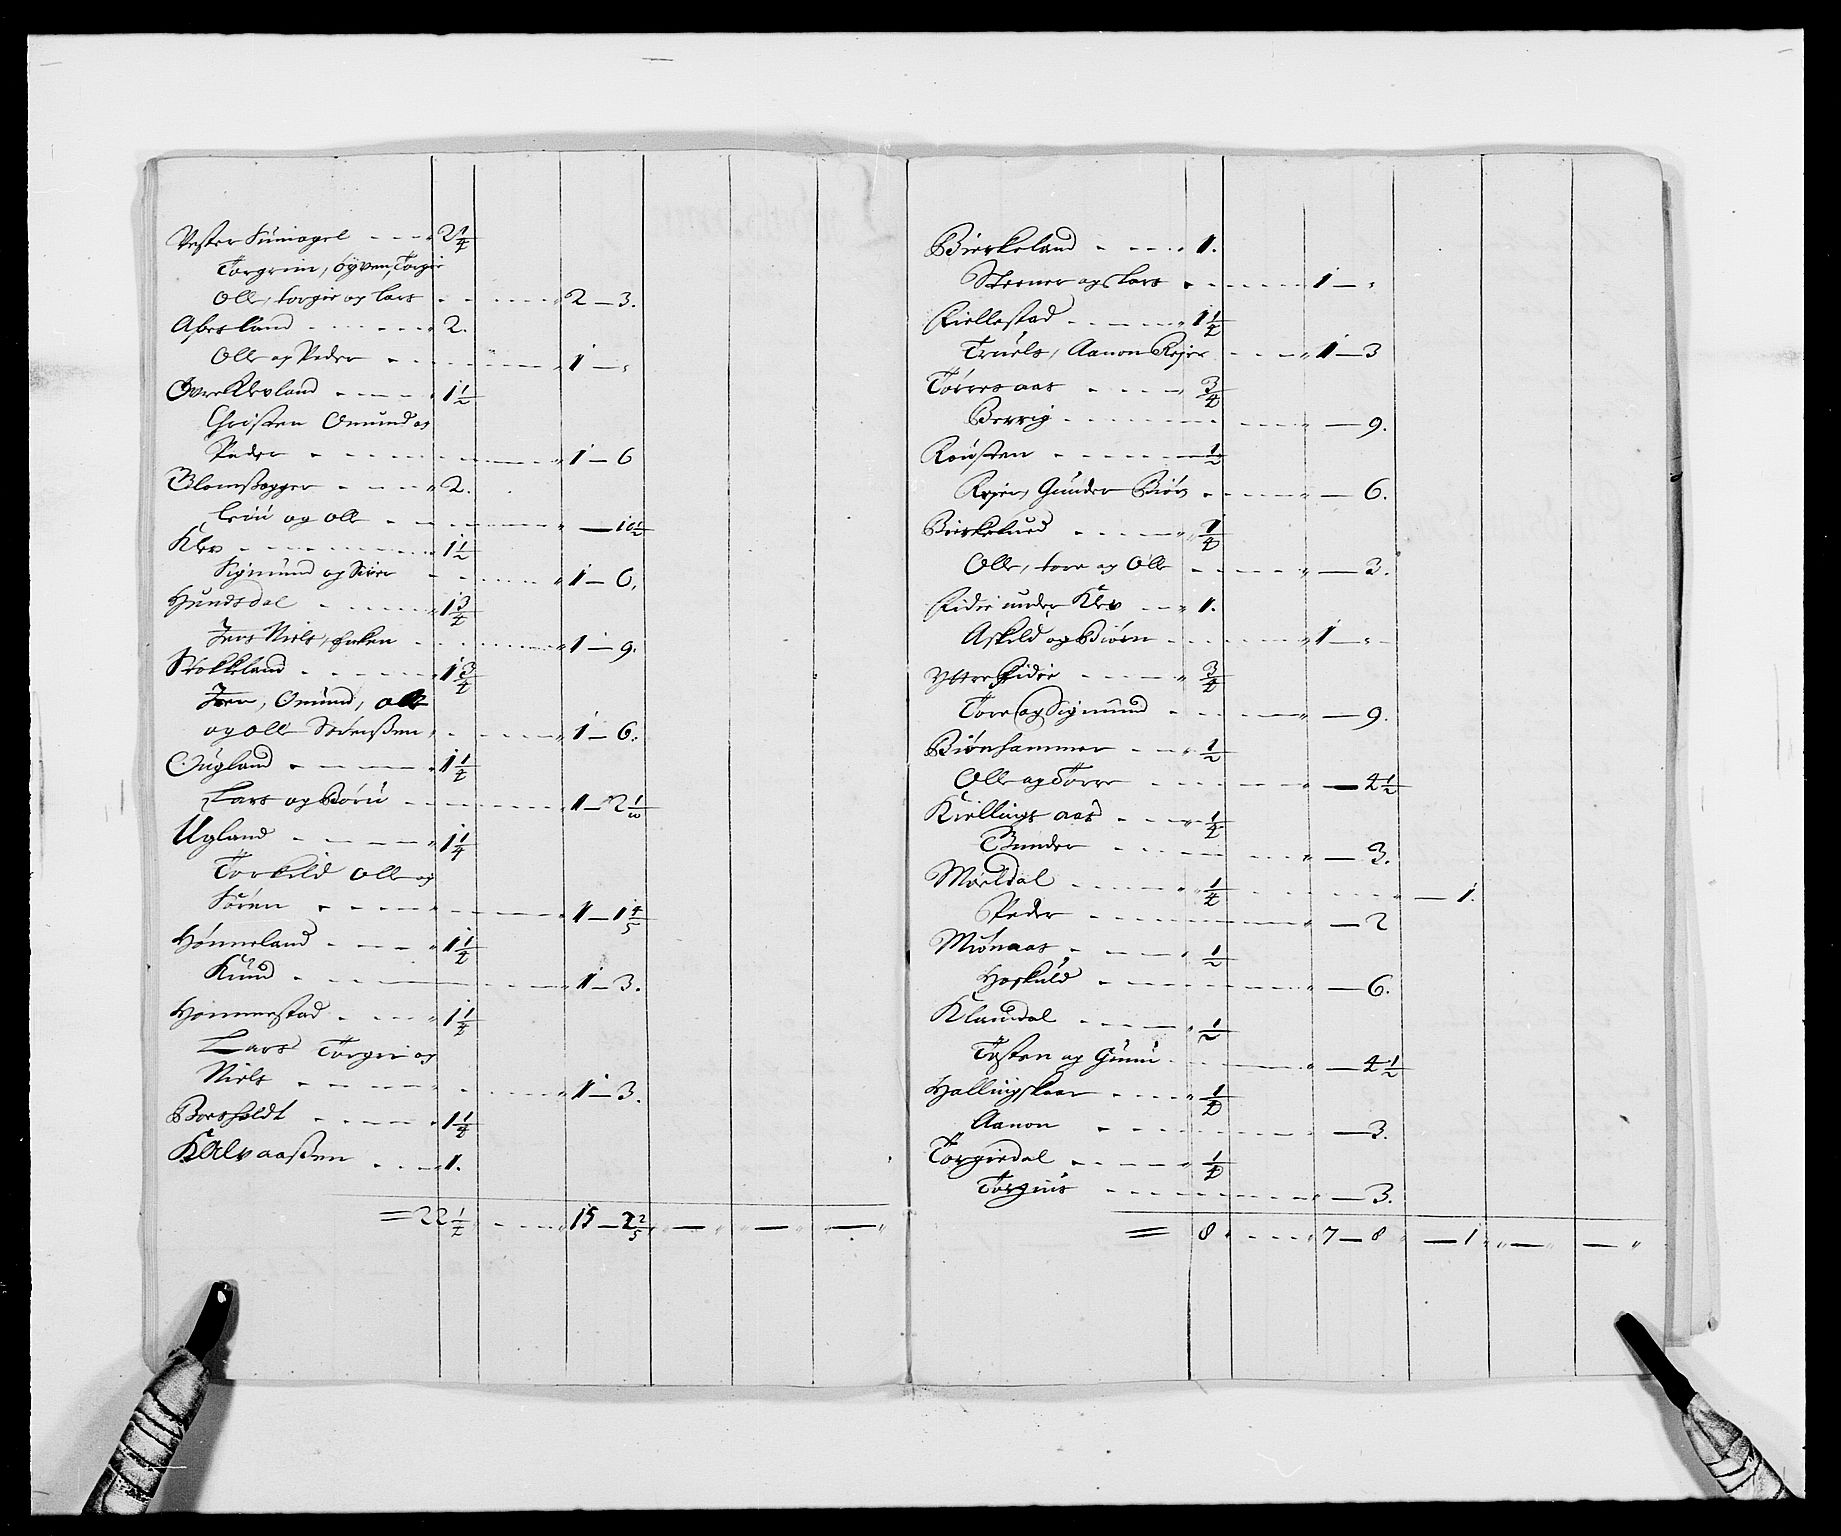 Vester Simagel - - - 2 1/4
Torgrim, Øyven, Torger
Olle, torger og Lars - - - - - 2 — 3.
Abesland - - - - 2.
Olle og Peder - - - - - 1 — "
Øvre Klevland - - - - 1 1/2
Christen Omund og
Peder - - - - - 1 — 6
Blomstopper - - - 2.
og Olle - - - - - — 10 1/2
Klev - - - - - 1 1/2
Sigmund og Siver - - - - - 1 — 6,
Hundsdal - - - - 1 3/4
Jens Niels, - - - - - 1 — 9.
Stokkeland - - - - 1 3/4
Jren, Omund, Olle
og Olle Sørenssen, - - - - 1 — 6.
Ougland - - - - 1 1/4
Lars og Børn - - - - - 1 — 2 1/10
Ugland - - - - 1 1/4
Torkild Olle og
Søren - - - - - 1 — 1 4/5
Hønneland - - - - 1 1/4
Knud - - - - - 1 — 3.
Hommestad - - - - 1 1/4
Lars Torger og
Niels - - - - - 1 — 3.
Boesholdt - - - - 1 1/4
Kalvaassen - - - 1.
= 22 1/4 - - - - 15 — 2 2/5 " — " " — " " — "
Bierkeland - - - - 1.
Steener og Lars - - - - - 1 — "
Fiellestad - - - - 1 1/4
Truels, Aanon Rejer - - - 1 — 3
Tørresaas - - - - 3/4
Berrig - - - - - — 9.
Rousten - - - - 1/2
Rejer, Gunder Biør - - - - — 6.
Bierkelund - - - - 1/4
Olle, tore og Olle - - - - - — 3.
Eidie under Klev - - - 1.
Askeld og Biørn - - - - - 1 — "
Yttre Eidie - - - - 3/4
Tore og Sigmund - - - - — 9.
Biørnhammer - - - 1/2
Olle og Torre - - - - - — 4 1/2
Kiellings aas - - - 1/4
Gunder - - - - - — 3.
Møeldal - - - - 1/4 - - - - — 1.
Peder - - - - - — 2
Miønaas, - - - - 1/2
Hoskuld - - - - - — 6.
Klaudal - - - - 1/2
Tosten og Gunn - - - - — 4 1/2
Hallingskaar - - - - 1/4
Aanon - - - - - — 3.
Torgiedal - - - - 1/4
Torgius - - - - - — 3.
= 8 - - - - 7 — 8 " — 1 " " — " — "